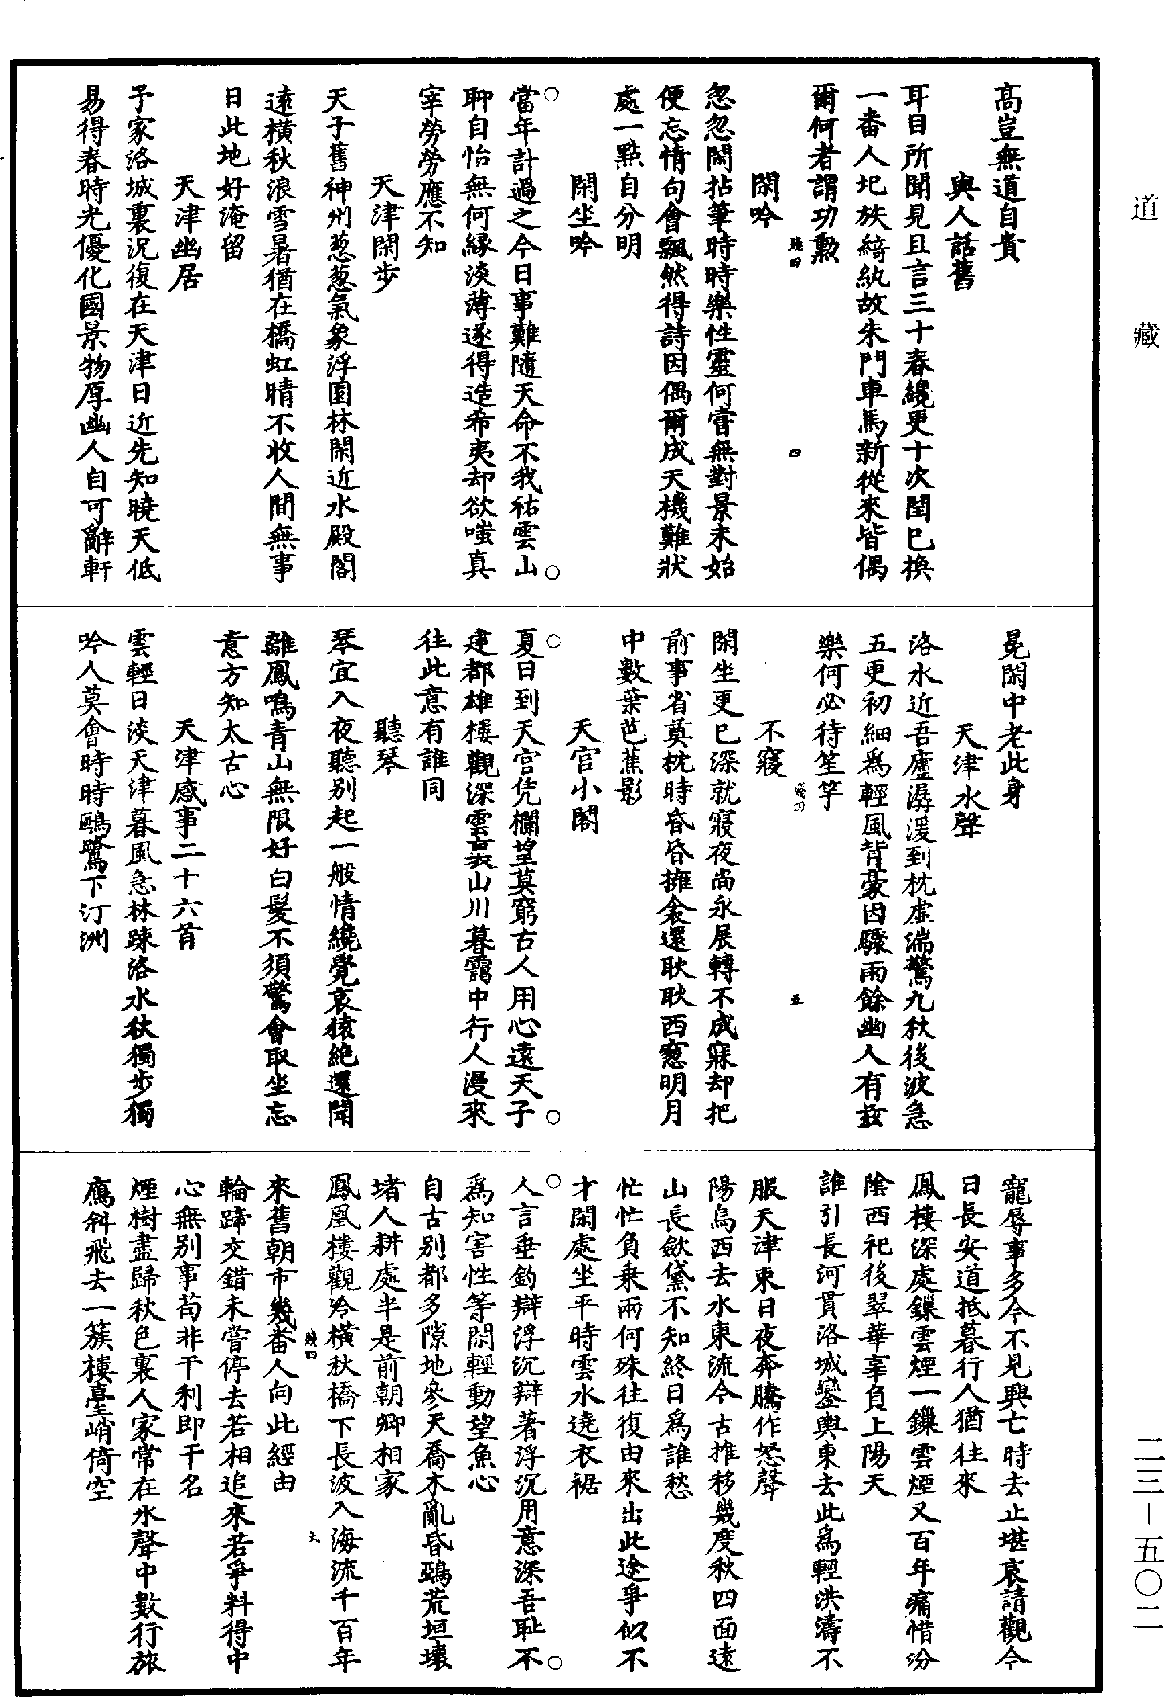 道藏
高豈無道自貴
與人話舊
耳目所聞見且言三十春纔更十次閏已換
一番人圮族綺紈故朱門車馬新從來皆偶
爾何者謂功勲
閑吟
忽忽閑拈筆時時樂性靈何嘗無對景未始
便忘情句會飄然得詩因偶爾成天機難狀
處一點自分明
閑坐吟
當年計過之今日事難隨天命不我祐雲山
聊自怡無何緣淡薄遂得造希夷却欲嗤真
宰勞勞應不知
天津閑步
天子舊神州葱葱氣象浮園林閑近水殿閣
遠橫秋浪雪暑猶在橋虹晴不收人間無事
日此地好淹留
天津幽居
予家洛城裏況復在天津日近先知曉天低
易得春時光優化國景物厚幽人自可辭軒
冕閑中老此身
天津水聲
洛水近吾廬潺湲到枕虚湍驚九秋後波急
五更初細爲輕風背豪因驟雨餘幽人有兹
樂何必待笙竽
不寢
閑坐更已深就寢夜尚永展轉不成寐却把
前事省奠枕時昏昏擁衾還耿耿西窻明月
中數葉芭蕉影
天宫小閣
夏日到天宫凭欄望莫窮古人用心遠天子
建都雄樓觀深雲裏山川暮靄中行人漫來
往此意有誰同
聽琴
琴宜入夜聽別起一般情纔覺哀猿絶還聞
離鳳鳴青山無限好白髮不須驚會取坐忘
意方知太古心
天津感事二十六首
雲輕日淡天津暮風急林踈洛水秋獨步獨
吟人莫會時時鷗鷺下汀洲
寵辱事多今不見興亡時去止堪哀請觀今
日長安道抵暮行人猶往來
鳳樓深處鏁雲煙一鏁雲煙又百年痛惜汾
陰西祀後翠華辜負上陽天
誰引長河貫洛城鑾輿東去此爲輕洪濤不
服天津東日夜奔騰作怒聲
陽烏西去水東流今古推移幾度秋四面遠
山長歛黛不知終日爲誰愁
忙忙負乘兩何殊往復由來出此途爭似不
才閑處坐平時雲水遶衣裾
人言垂釣辯浮沉辯著浮沉用意深吾恥不
爲知害性等閑輕動望魚心
自古別都多隙地參天喬木亂昏鵶荒垣壞
堵人耕處半是前朝卿相家
鳳凰樓觀冷橫秋橋下長波入海流千百年
來舊朝市幾番人向此經由
輪蹄交錯未嘗停去若相追來若爭料得中
心無別事苟非干利即干名
煙樹盡歸秋色裏人家常在水聲中數行旅
鴈斜飛去一簇樓臺峭倚空
二三－五〇二